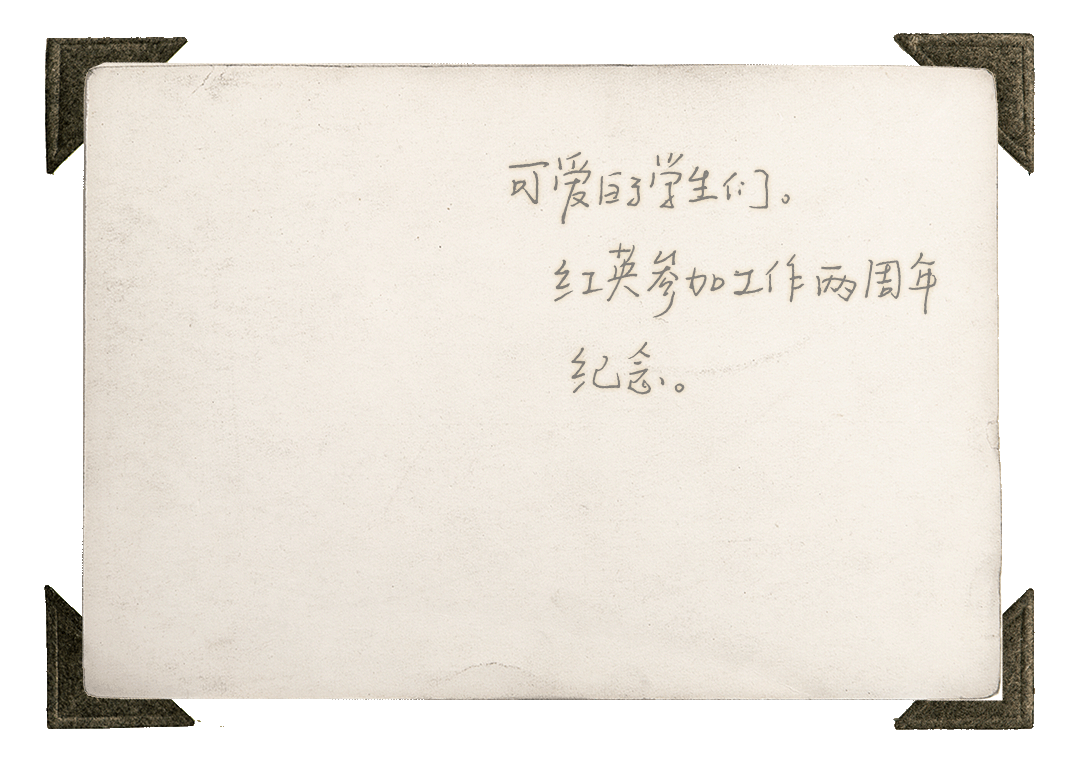 可爱的学生们。
红英参加工作两周年
纪念。